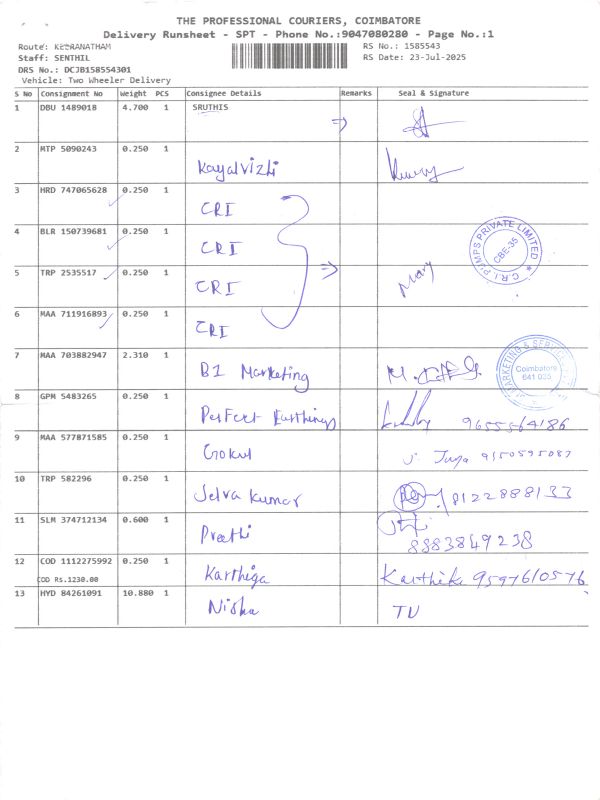 THE PROFESSIONAL COURIERS, COIMBATORE
Delivery Runsheet - SPT - Phone No.:9047080280 - Page No.:1
Route: KEERANATHAM RS No.: 1585543
Staff: SENTHIL RS Date: 23-Jul-2025
DRS No.: DCJB158554301
Vehicle: Two Wheeler Delivery
S No Consignment No Weight PCS Consignee Details Remarks Seal & Signature
1 DBU 1489018 4.700 1 SRUTHIS
2 MTP 5090243 0.250 1 Kayalvizhi
3 HRD 747065628 0.250 1 CRI
4 BLR 150739681 0.250 1 CRI
C.R.I PUMPS PRIVATE LIMITED
CBE-35
5 TRP 2535517 0.250 1 CRI Mary
6 MAA 711916893 0.250 1 CRI
7 MAA 703882947 2.310 1 B1 Marketing
MARKETING & SERVICE
Coimbatore
641 035
8 GPM 5483265 0.250 1 Perfect Earthings 9655564186
9 MAA 577871585 0.250 1 Gokul
10 TRP 582296 0.250 1 Selva Kumar 8122888133
11 SLM 374712134 0.600 1 Preethi
8883849238
12 COD 1112275992 0.250 1 Karthiga Karthika 9597610576
COD Rs.1230.00
13 HYD 84261091 10.880 1 Nisha